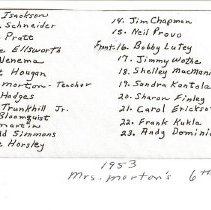 Isackson
Schneider
Pratt
Ellsworth
Venema
Hougan
morton - Teacher
Hodges
Trunkhill Jr.
Bloomquist
martin
Simmons
Horsley
14. Jim Chapman
15. Neil Provo
Front 16. Bobby Lutey
17. Jimmy Wothe
18. Shelley MacMani
19. Sandra Kontala
20. Sharon Finley
21. Carol Erickson
22. Frank Kukla
23. Andy Dominic
1953
Mrs. Morton's 6th